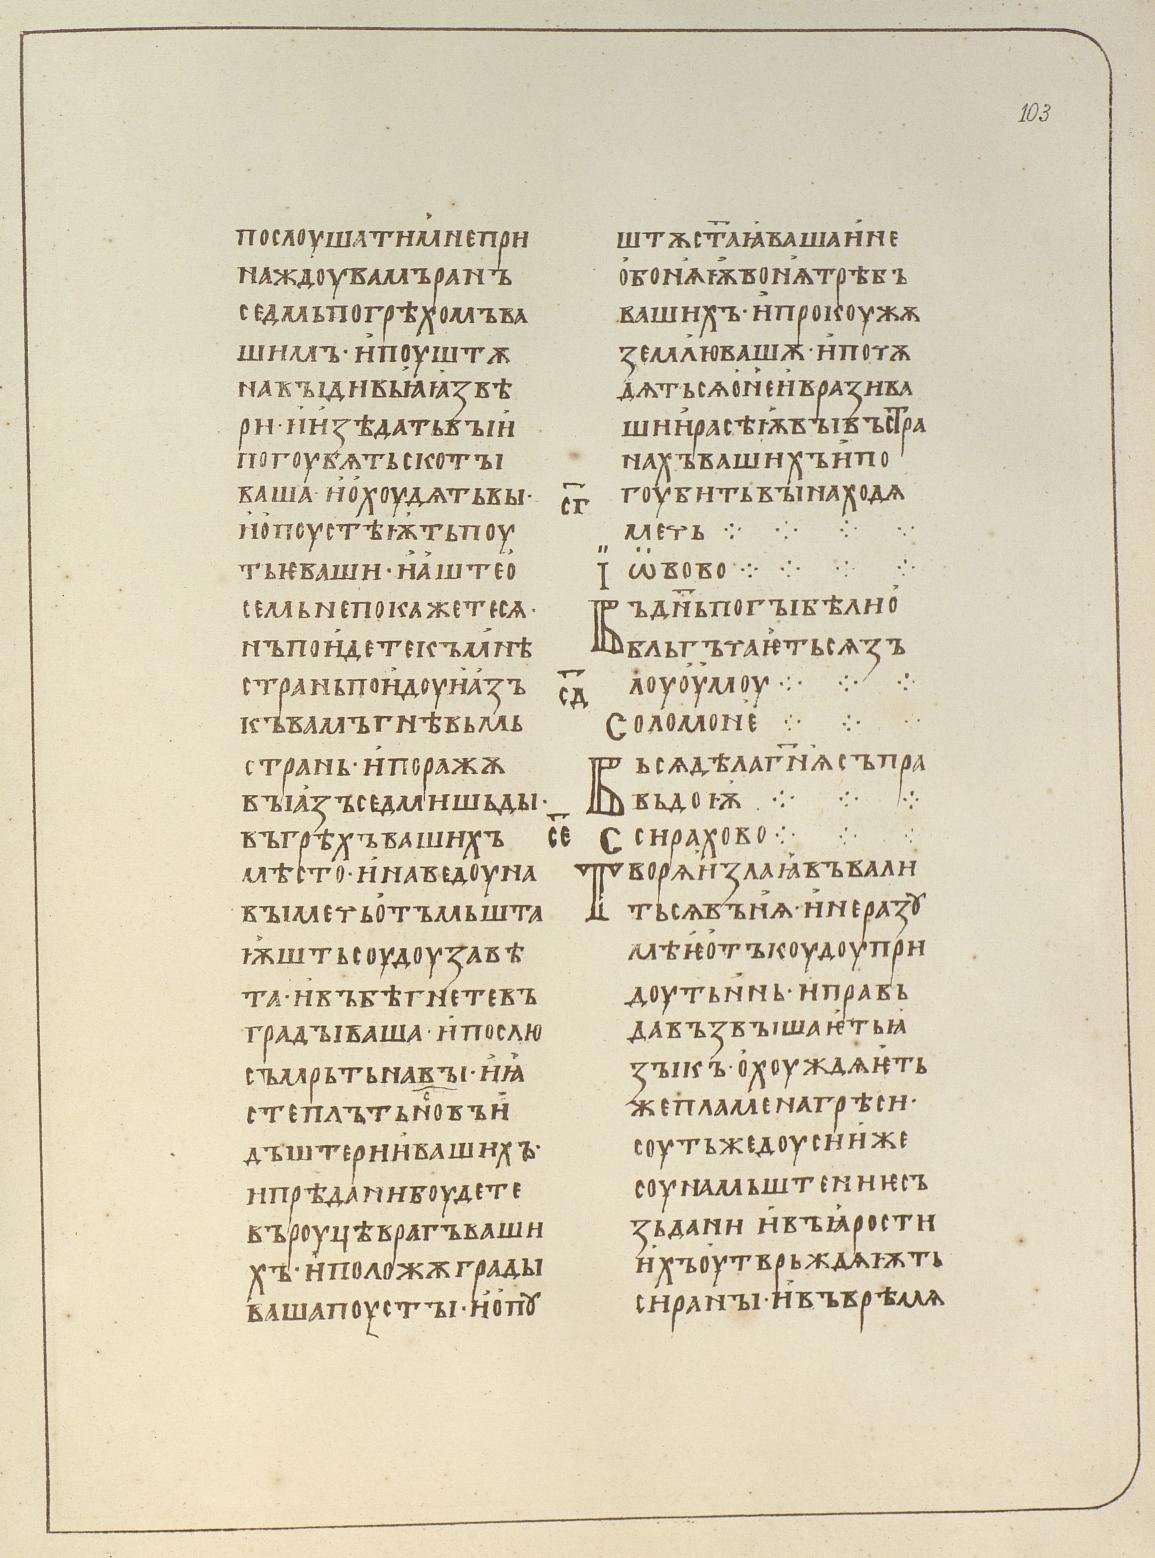 103
послоушатимѧне при
наждоу вамъ ранъ
седмь по грѣхомъ ва
шимъ · и поуштѫ
на въı дивыꙗ ꙗзвѣ
ри · и изѣдать въı и
погоубѧть скотъı
ваша · и охоудѧть вы ·
и опоустѣѭть поу
тьѥ ваши · и аште о
семь не покажетесѧ ·
нъ поидете къ мнѣ
странь поидоу и азъ
къ вамъ гнѣвьмь
странь · и поражѫ
въı азъ седмишьды ·
въ грѣхъ вашихъ
мѣсто · и наведоу на
въı мечь отъмьшта
ѭшть соудоу завѣ
та · и въбѣгнете въ
градъı ваша · и послю
съмрьть на въı · и ꙗ
сте плъть сн҃овъ и
дъштерии вашихъ ·
и прѣдани боудете
въ роуцѣ врагъ ваши
хъ · и положѫ грады
ваша поустъı · и опꙋ
штѫ ст҃лꙗ ваша и не
обонѧѭ вонѧ трѣбъ
вашихъ · и прокоужѫ
землю вашѫ · и почѫ
дѧтьсѧ о неи врази ва
ши и расѣѭ въı въ стра
нахъ вашихъ и по
с҃г гоубить въı находѧ
мечь ⁘ ⁘ ⁘ ⁘
Ї ѡвово ⁘ ⁘ ⁘ ⁘
Въ дн҃ь погыбѣлно
бльгъчаѥтьсѧ зъ
с҃д лоуоумоу ⁘ ⁘ ⁘
Соломоне ⁘ ⁘ ⁘
Вьсѧ дѣла гн҃ѧ съ пра
вьдоѭ ⁘ ⁘ ⁘
с҃е С сирахово ⁘ ⁘ ⁘
Творѧи злаꙗ въвали
тьсѧ въ нѧ · и не разꙋ
мѣѥ отъкоудоу при
доуть ѥмь · и правь
да възвъıшаѥть ꙗ
зъıкъ · охоуждѧѥть
же племена грѣси ·
соуть же доуси иже
соу на мьштениѥ съ
зьдани и въ ꙗрости
ихъ оутврьждѧѭть
си ранъı · и въ врѣмѧ